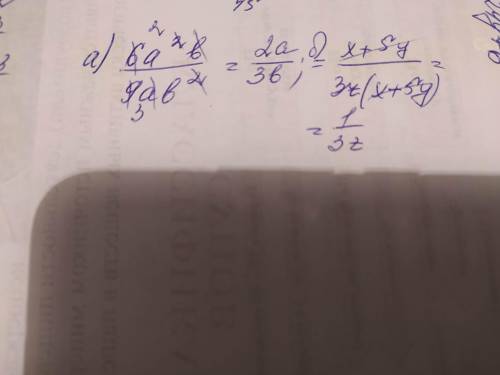 75
а) 6a²b/9ab² = 2a/3b; б) = x+5y/3z(x+5y) =
= 1/3z